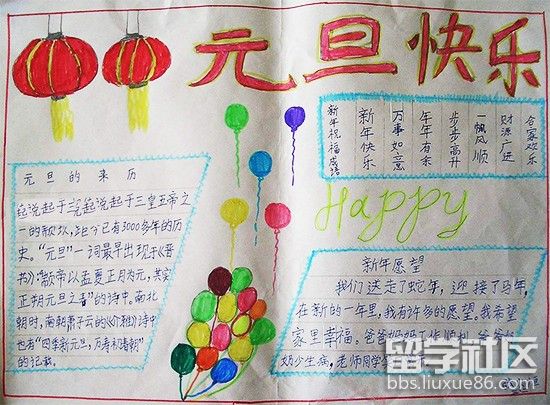 元旦快乐
新年祝福成语
新年快乐
万事如意
年年有余
步步高升
一帆风顺
财源广进
合家欢乐
元旦的来历
起说起于三皇五帝之
一的颛顼，距今已有3000多年的历
史。“元旦”一词最早出现于《晋
书》：“颛帝以孟夏正月为元，其实
正朔元旦之春”的诗中。南北
朝时，南朝萧子云的《介雅》诗中
也有“四季新元旦，万寿初春朝”
的记载。
Happy
新年愿望
我们送走了蛇年，迎接了马年，
在新的一年里，我有许多的愿望。我希望
家里幸福。爸爸妈妈工作顺利
奶少生病，老师同学
留学社区
bbs.liuxue86.com